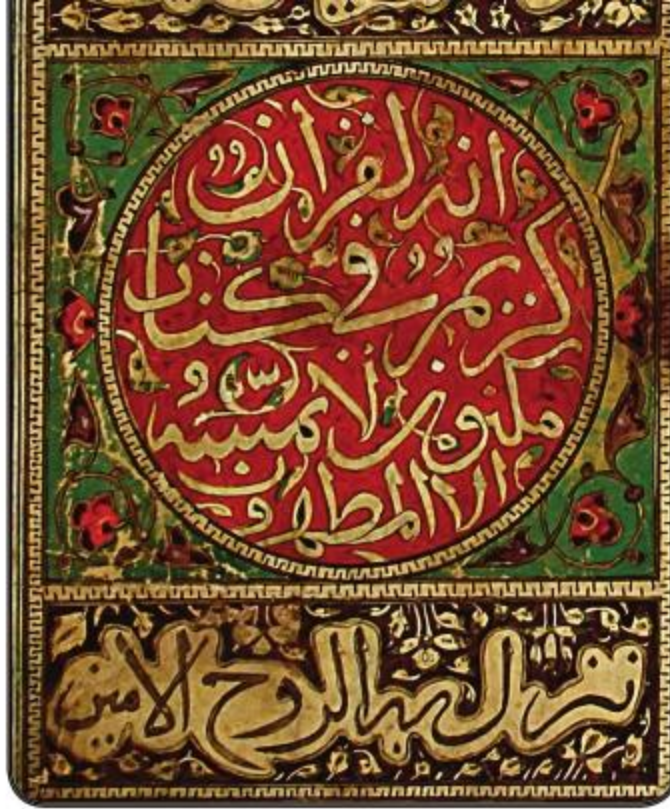 انه لقران
كريم في كتاب
مكنون لا يمسه
الا المطهرون
نزل به الروح الامين